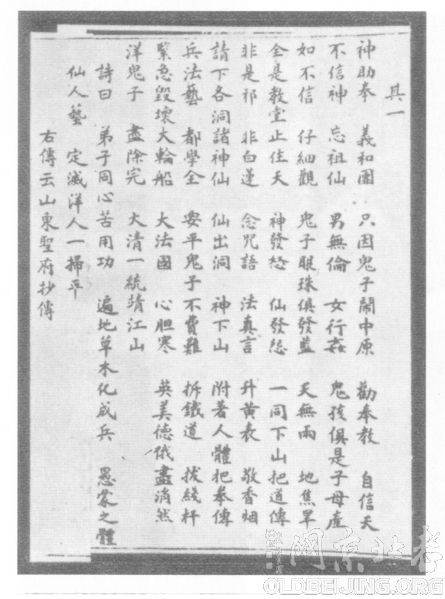 其一
神助拳 義和團 只因鬼子鬧中原 勸奉教 自信天
不信神 忘祖仙 男無倫 女行姦 鬼孩俱是子母產
如不信 仔細觀 鬼子眼珠俱發藍 天無雨 地焦旱
全是教堂止住天 神發怒 仙發怨 一同下山把道傳
非是邪 非白蓮 念咒語 法真言 升黃表 敬香烟
請下各洞諸神仙 仙出洞 神下山 附著人體把拳傳
兵法藝 都學全 要平鬼子不費難 拆鐵道 拔綫杆
緊急毀壞大輪船 大法國 心胆寒 英美德俄盡消然
洋鬼子 盡除完 大清一統靖江山
詩曰 弟子同心苦用功 遍地草木化成兵 愚蒙之體
仙人藝 定滅洋人一掃平
右傳云山東聖府抄傳
网京北老
OLDBEIJING.ORG